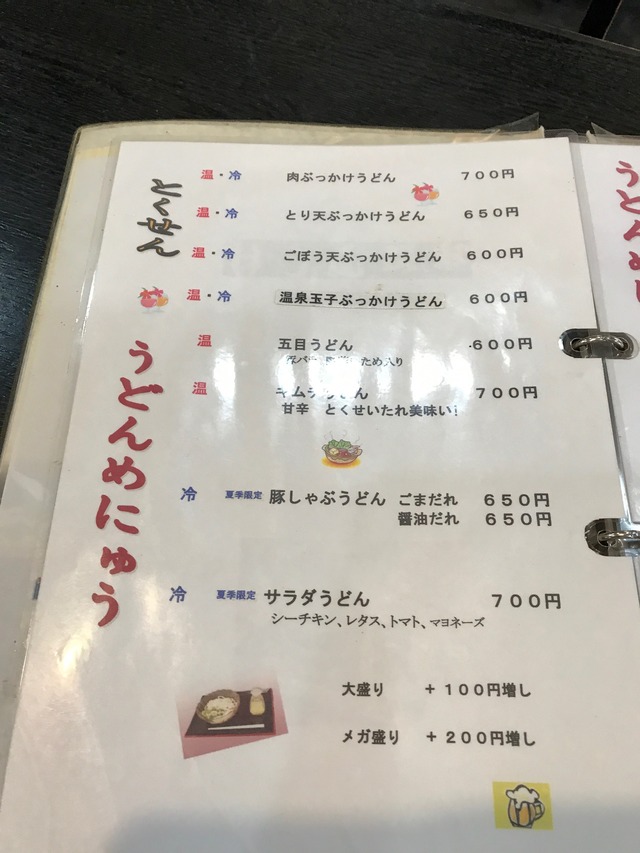 とくせん
うどんめにゅう
温・冷 肉ぶっかけうどん 700円
温・冷 とり天ぶっかけうどん 650円
温・冷 ごぼう天ぶっかけうどん 600円
温・冷 温泉玉子ぶっかけうどん 600円
温 五目うどん 600円
ため入り
温 キムチうどん 700円
甘辛 とくせいたれ美味い!
冷 夏季限定 豚しゃぶうどん ごまだれ 650円
醤油だれ 650円
冷 夏季限定 サラダうどん 700円
シーチキン、レタス、トマト、マヨネーズ
大盛り +100円増し
メガ盛り +200円増し
うどんめ